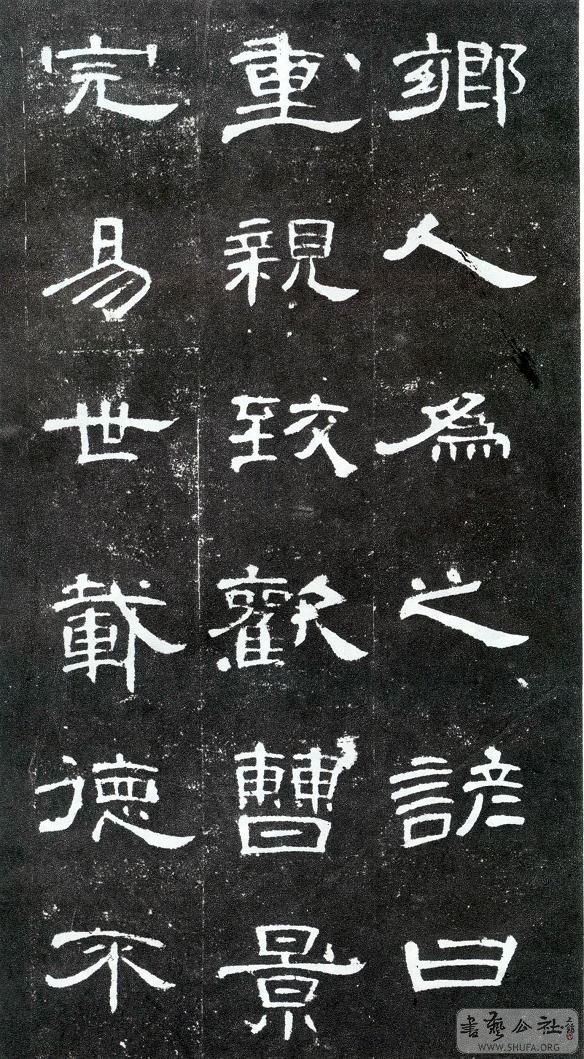 鄉人爲之諺曰
重親致歡曹景
完易世載德不
書藝公社
WWW.SHUFA.ORG